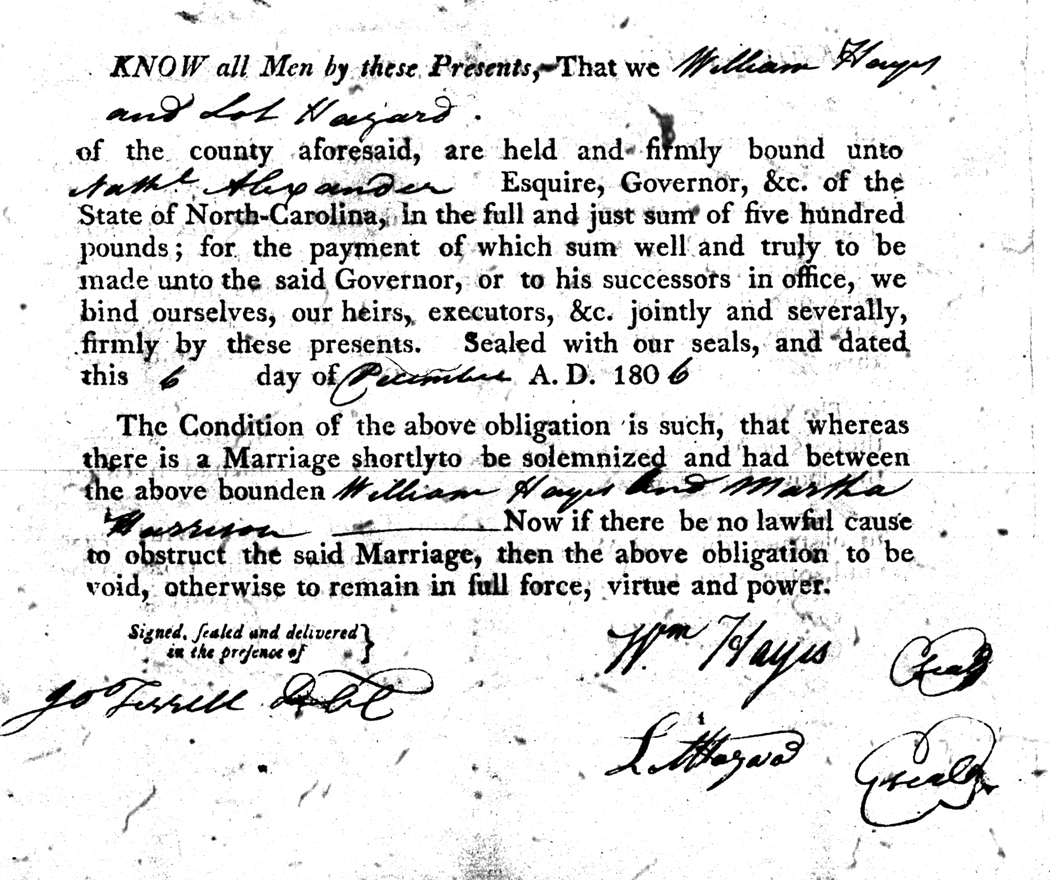 KNOW all Men by these Presents, That we William Hayes
and Lot Hazard.
of the county aforesaid, are held and firmly bound unto
Nathl Alexander Esquire, Governor, &c. of the
State of North-Carolina, in the full and just sum of five hundred
pounds; for the payment of which sum well and truly to be
made unto the said Governor, or to his successors in office, we
bind ourselves, our heirs, executors, &c. jointly and severally,
firmly by these presents. Sealed with our seals, and dated
this 6 day of December A. D. 1806
The Condition of the above obligation is such, that whereas
there is a Marriage shortlyto be solemnized and had between
the above bounden William Hayes and Martha
Harrison Now if there be no lawful cause
to obstruct the said Marriage, then the above obligation to be
void, otherwise to remain in full force, virtue and power.
Signed, ſealed and delivered }
in the preſence of
Wm Hayes (seal)
Jo Terrell
Lot Hazard (seal)